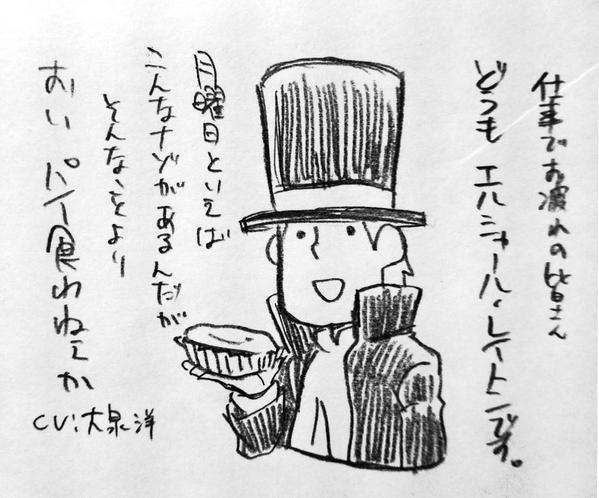 仕事でお疲れの皆さん
どうも エルシャール・レイトンです。
月曜日といえば
こんなナゾがあるんだが
そんなことより
おい パイ食わねえか
CV:大泉洋